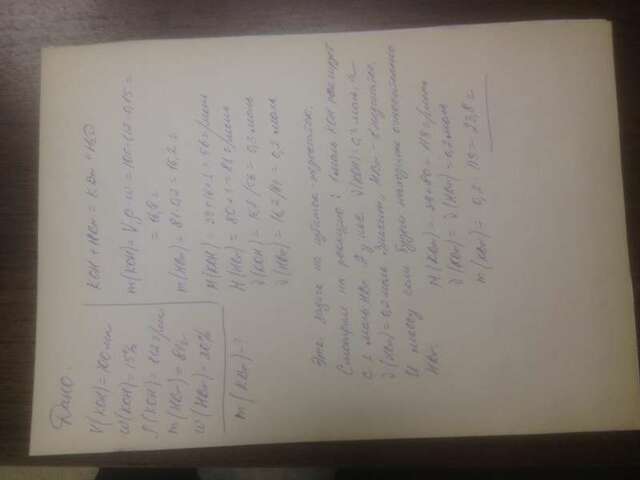 Дано:
V(KOH) = 100 мл
w(KOH) = 15%
ρ(KOH) = 1,12 г/мл
m(HBr) = 81г
w(HBr) = 20%
m(KBr) - ?
KOH + HBr = KBr + H₂O
m(KOH) = V·ρ·w = 100·1,12·0,15 =
= 16,8 г
m(HBr) = 81·0,2 = 16,2 г
M(KOH) = 39+16+1 = 56 г/моль
M(HBr) = 80+1 = 81 г/моль
ν(KOH) = 16,8/56 = 0,3 моль
ν(HBr) = 16,2/81 = 0,2 моль
Это задача на избыток-недостаток.
Смотрим на реакцию: 1 моль KOH реагирует
с 1 моль HBr. А у нас ν(KOH) = 0,3 моль, а
ν(HBr) = 0,2 моль. Значит, HBr - в недостатке.
И массу соли будем находить относительно
HBr.
M(KBr) = 39+80 = 119 г/моль
ν(KBr) = ν(HBr) = 0,2 моль
m(KBr) = 0,2 · 119 = 23,8 г